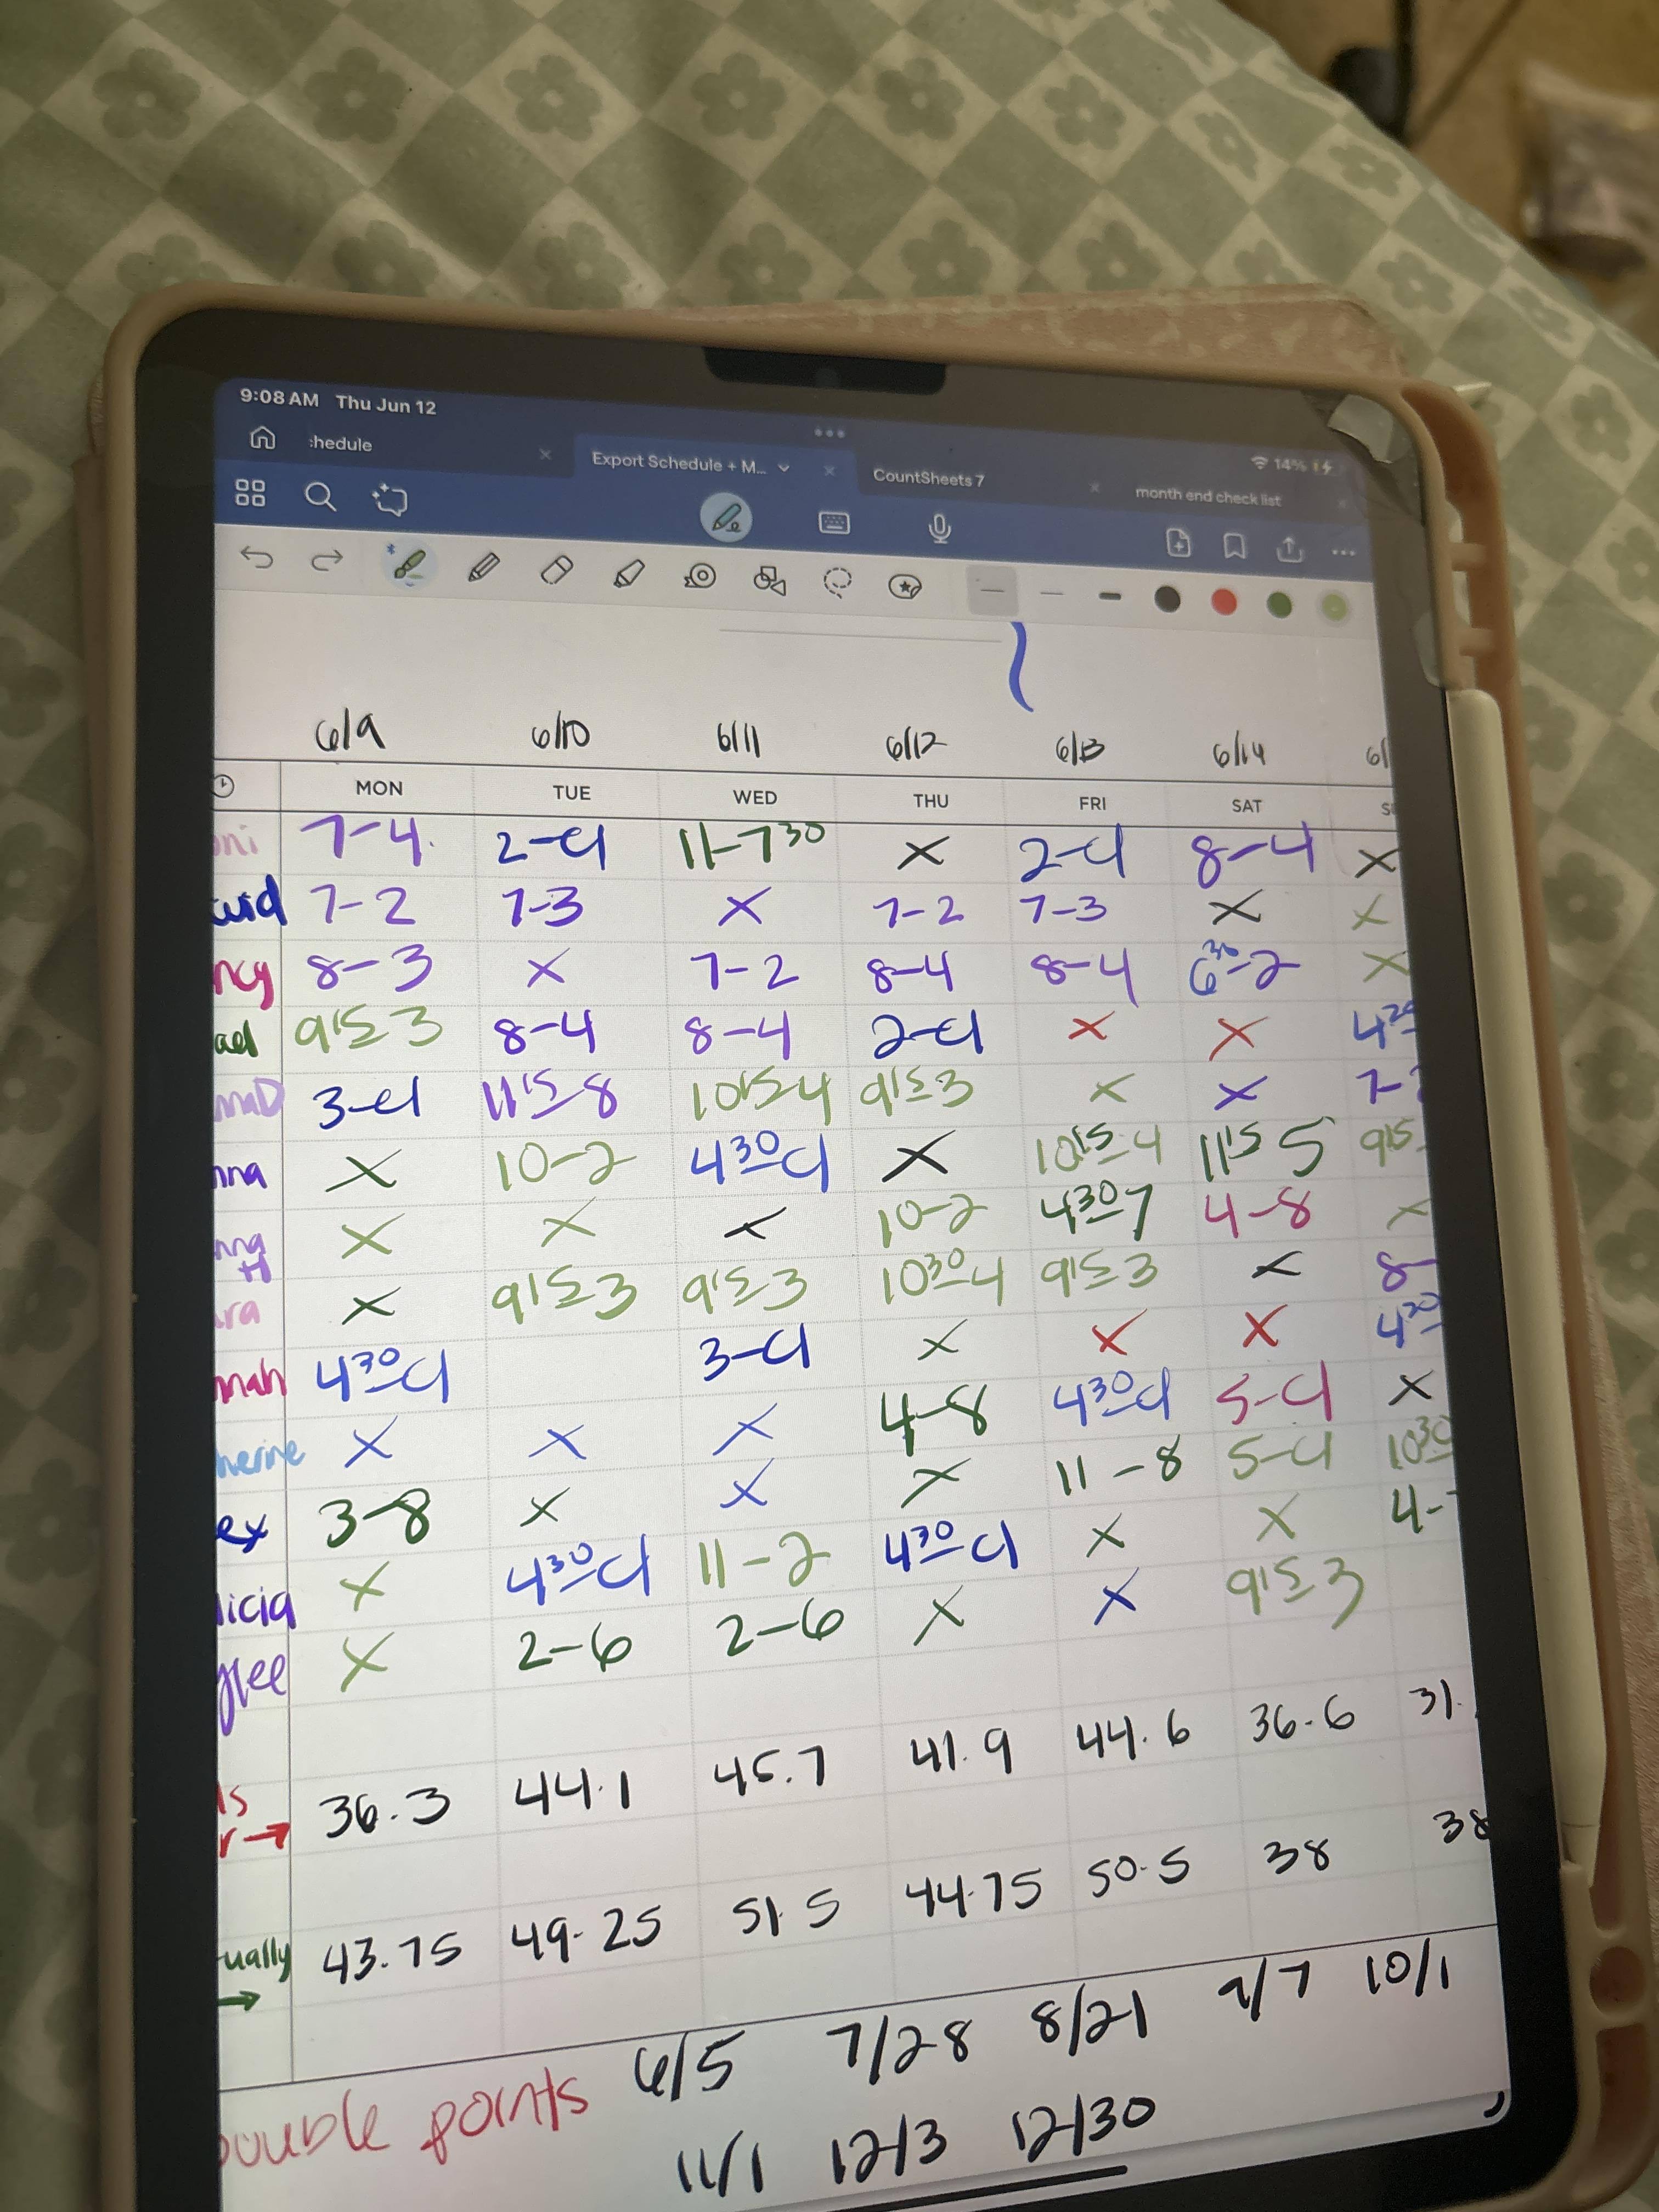 9:08 AM Thu Jun 12
14%
:hedule
Export Schedule + M...
CountSheets 7
month end check list
6/9 6/10 6/11 6/12 6/13 6/14 6/
MON TUE WED THU FRI SAT S
ni 7-4. 2-Cl 11-7³⁰ X 2-Cl 8-4 X
7-2 7-3 X 7-2 7-3 X X
ncy 8-3 X 7-2 8-4 8-4 6³⁰-2 X
ael 9¹⁵-3 8-4 8-4 2-Cl X X 4
maD 3-Cl 11¹⁵-8 10¹⁵-4 9¹⁵-3 X X 7-
nna X 10-2 4³⁰-Cl X 10¹⁵-4 11¹⁵ 5 9¹⁵-
nna H X X X 10-2 4³⁰-7 4-8 X
ra X 9¹⁵-3 9¹⁵-3 10³⁰-4 9¹⁵-3 X 8-
mah 4³⁰-Cl 3-Cl X X X 4
herine X X X 4-8 4³⁰-Cl 5-Cl X
ex 3-8 X X X 11-8 5-Cl 10³⁰
licia X 4³⁰-Cl 11-2 4³⁰-Cl X X 4-
ylee X 2-6 2-6 X X 9¹⁵-3
ls
r → 36.3 44.1 45.7 41.9 44.6 36.6 31.
ually → 43.75 49.25 51.5 44.75 50.5 38 38
ouble points 6/5 7/28 8/21 9/7 10/1
11/1 12/3 12/30